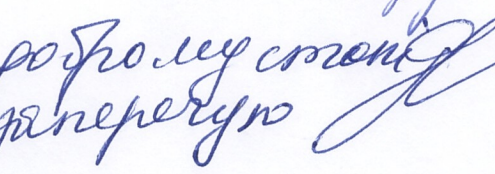 доброму стані
заперечую